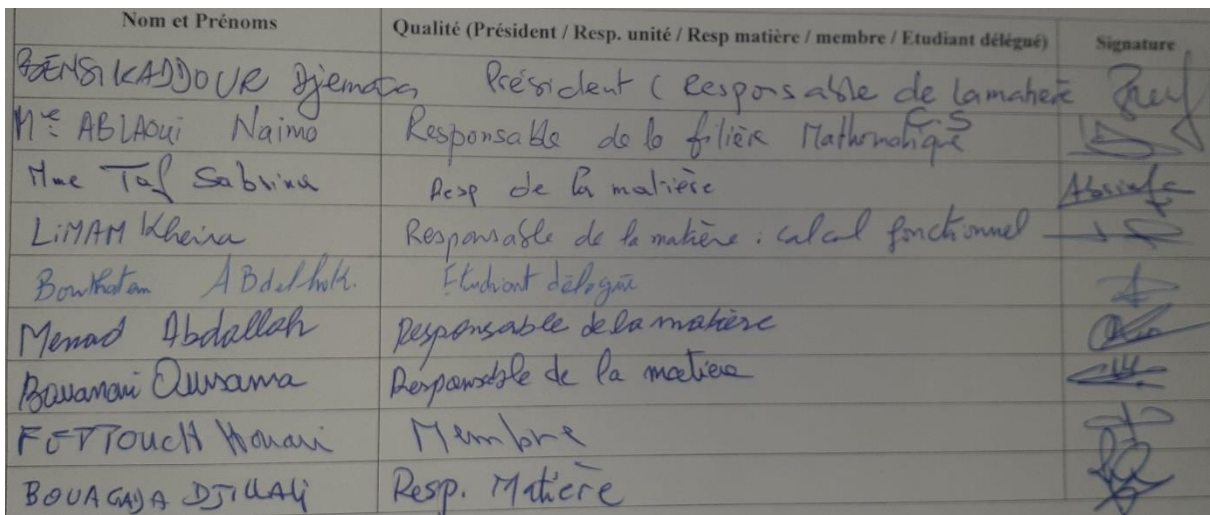 Nom et Prénoms Qualité (Président / Resp. unité / Resp matière / membre / Etudiant délégué) Signature
BENSIKADDOUR Djemaia Président (Responsable de la matière C.S
Mme ABLAOUI Naima Responsable de la filière Mathématique
Mme Taf Sabrina Resp de la matière Absente
LIMAM Kheira Responsable de la matière : calcul fonctionnel
Etudiant délégué
Menad Abdallah Responsable de la matière
Bouanani Oussama Responsable de la matière
FETTOUCH Houari Membre
BOUAGADA DJILLALI Resp. Matière